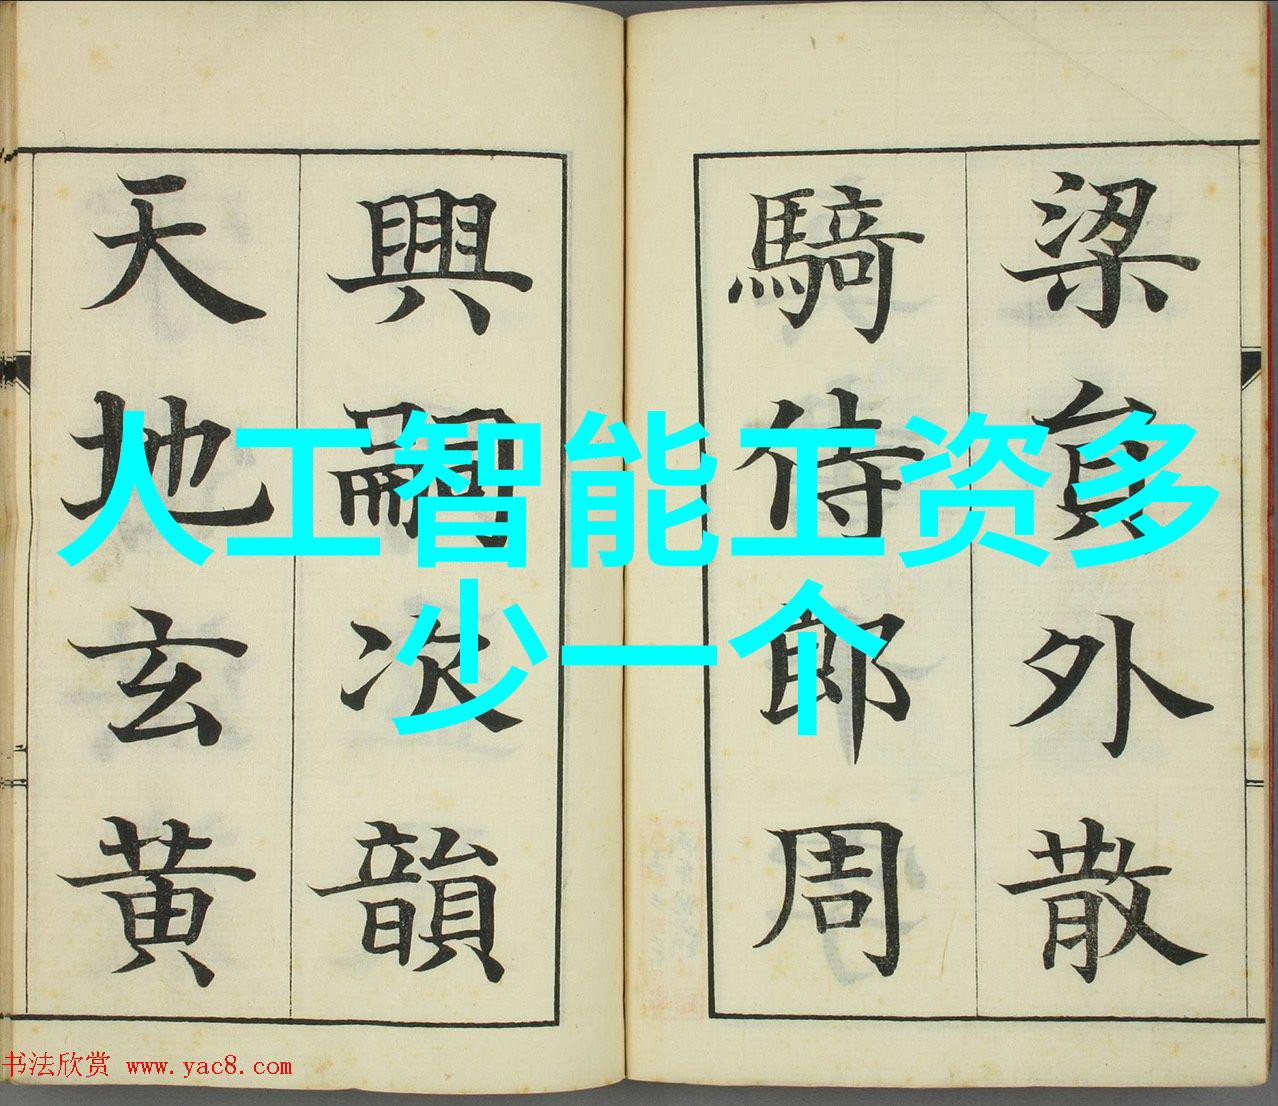 梁員外散
騎侍郎周
興嗣次韻
天地玄黃
人工智能工资多
少一个
书法欣赏 www.yac8.com